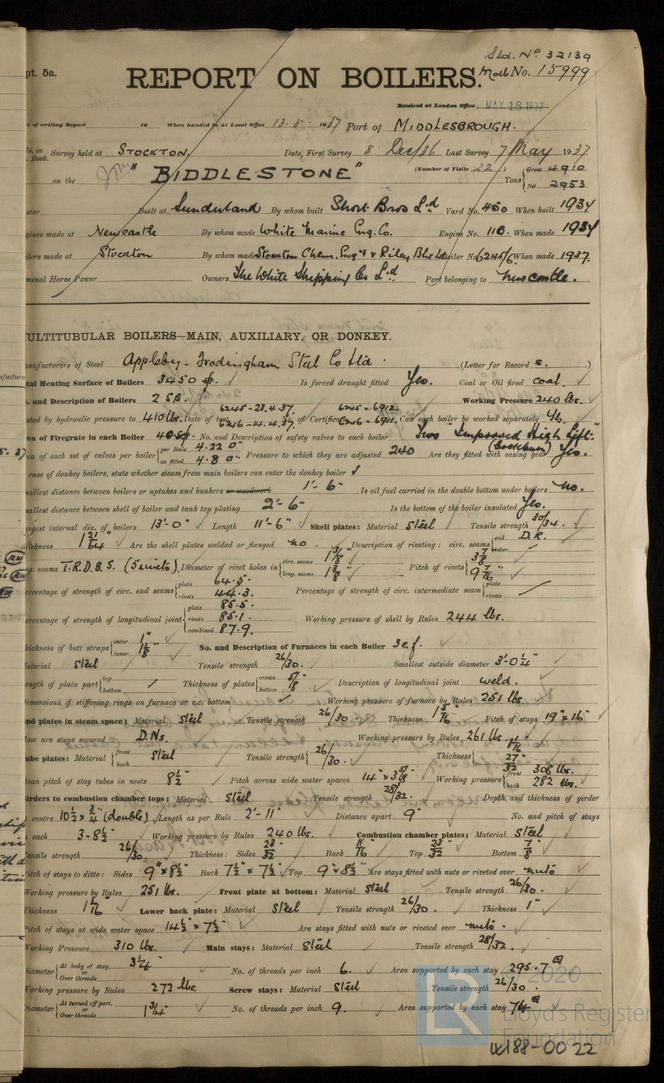 Sld. No. 32139
pt. 5a.
REPORT ON BOILERS.
Mdb No. 15999
Received at London Office MAY 18 1937
of writing Report 19 When handed in at Local Office 13.5. 1937 Port of MIDDLESBROUGH.
No. in Book. Survey held at STOCKTON. Date, First Survey 8 Dec/36 Last Survey 7 May 1937
on the "BIDDLESTONE" (Number of Visits 22) Tons Gross 4910 Net 2953
Built at Sunderland By whom built Short Bros Ld Yard No. 450 When built 1934
Engines made at Newcastle By whom made White Marine Eng. Co. Engine No. 110 When made 1934
Boilers made at Stockton By whom made Stockton Chem. Engrs & Riley Blrs Ld Boiler No. 6245/6 When made 1937.
Nominal Horse Power Owners The White Shipping Co Ld. Port belonging to Newcastle.
MULTITUBULAR BOILERS—MAIN, AUXILIARY, OR DONKEY.
Manufacturers of Steel Appleby-Frodingham Steel Co Ltd. (Letter for Record S.)
Total Heating Surface of Boilers 3450 Is forced draught fitted Yes. Coal or Oil fired coal.
No. and Description of Boilers 2 SB. Working Pressure 240 lbs.
Tested by hydraulic pressure to 410 lbs. Date of test 6245-23.4.37. 6246-4.37 No. of Certificate 6245-6912. 6246-6911. Can each boiler be worked separately Yes.
Area of Firegrate in each Boiler No. and Description of safety valves to each boiler Two "Improved High Lift" (Cockburn)
Area of each set of valves per boiler per Rule 4.22 as fitted 4.80 Pressure to which they are adjusted 240 Are they fitted with easing gear Yes.
In case of donkey boilers, state whether steam from main boilers can enter the donkey boiler
Smallest distance between boilers or uptakes and bunkers or woodwork 1'-6" Is oil fuel carried in the double bottom under boilers no.
Smallest distance between shell of boiler and tank top plating 2'-6" Is the bottom of the boiler insulated Yes.
Largest internal dia. of boilers 13'-0" Length 11'-6" Shell plates: Material Steel Tensile strength 30/34.
Thickness 1 21/64" Are the shell plates welded or flanged no. Description of riveting: circ. seams end D.R. inter
long. seams T.R.D.B.S. (5 rivets) Diameter of rivet holes in circ. seams 1 3/8 long. seams 1 3/8 Pitch of rivets 9 7/16"
Percentage of strength of circ. end seams plate 64.5. rivets 44.3. Percentage of strength of circ. intermediate seam plate rivets
Percentage of strength of longitudinal joint plate 85.5. rivets 85.1. combined 87.9. Working pressure of shell by Rules 244 lbs.
Thickness of butt straps outer 1" inner 1 1/8 No. and Description of Furnaces in each Boiler 3cf.
Material Steel Tensile strength 26/30. Smallest outside diameter 3'-0 1/4"
Length of plain part top bottom Thickness of plates crown bottom 5/8" Description of longitudinal joint weld.
Dimensions of stiffening rings on furnace or c.c. bottom Working pressure of furnace by Rules 251 lbs.
End plates in steam space: Material Steel Tensile strength 26/30. Thickness 1 5/16 Pitch of stays 19" x 16"
How are stays secured D.Ns. Working pressure by Rules 261 lbs.
Tube plates: Material front back Steel Tensile strength 26/30. Thickness 27/32
Mean pitch of stay tubes in nests 8 1/2" Pitch across wide water spaces 14" x Working pressure front 308 lbs. back 282 lbs.
Girders to combustion chamber tops: Material Steel Tensile strength 28/32. Depth and thickness of girder
centre. 10 1/2 x 3/4 (double) Length as per Rule 2'-11" Distance apart 9" No. and pitch of stays
each 3-8 1/2" Working pressure by Rules 240 lbs. Combustion chamber plates: Material Steel
Tensile strength 26/30. Thickness: Sides 23/32 Back 11/16 Top 23/32 Bottom 7/8
Pitch of stays to ditto: Sides 9" x 8 1/2" Back 7 1/2" x 7 1/2" Top 9" x 8 1/2" Are stays fitted with nuts or riveted over nuts
Working pressure by Rules 251 lbs. Front plate at bottom: Material Steel Tensile strength 26/30.
Thickness 1 1/16 Lower back plate: Material Steel Tensile strength 26/30. Thickness 1"
Pitch of stays at wide water space 14 1/2" x 7 1/2" Are stays fitted with nuts or riveted over nuts.
Working Pressure 310 lbs. Main stays: Material Steel Tensile strength 28/32.
Diameter At body of stay, Over threads 3 1/4" No. of threads per inch 6. Area supported by each stay 295.7
Working pressure by Rules 272 lbs. Screw stays: Material Steel Tensile strength 26/30.
Diameter At turned off part, Over threads 1 3/4" No. of threads per inch 9. Area supported by each stay 76
© 2020
LR Lloyd's Register Foundation
W188-0022